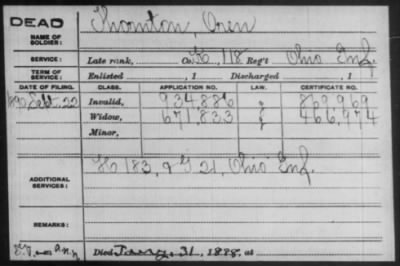 DEAD
NAME OF SOLDIER: Thornton, Oren
SERVICE: Late rank, Co. K, 118 Reg't Ohio Inf.
TERM OF SERVICE: Enlisted , 1 Discharged , 1
DATE OF FILING. CLASS. APPLICATION NO. LAW. CERTIFICATE NO.
1890 Sept. 22 Invalid, 934,886 869,969
Widow, 671,833 466,974
Minor,
ADDITIONAL SERVICES: K 183, & G 21, Ohio Inf.
REMARKS:
Died Jany. 31, 1898, at